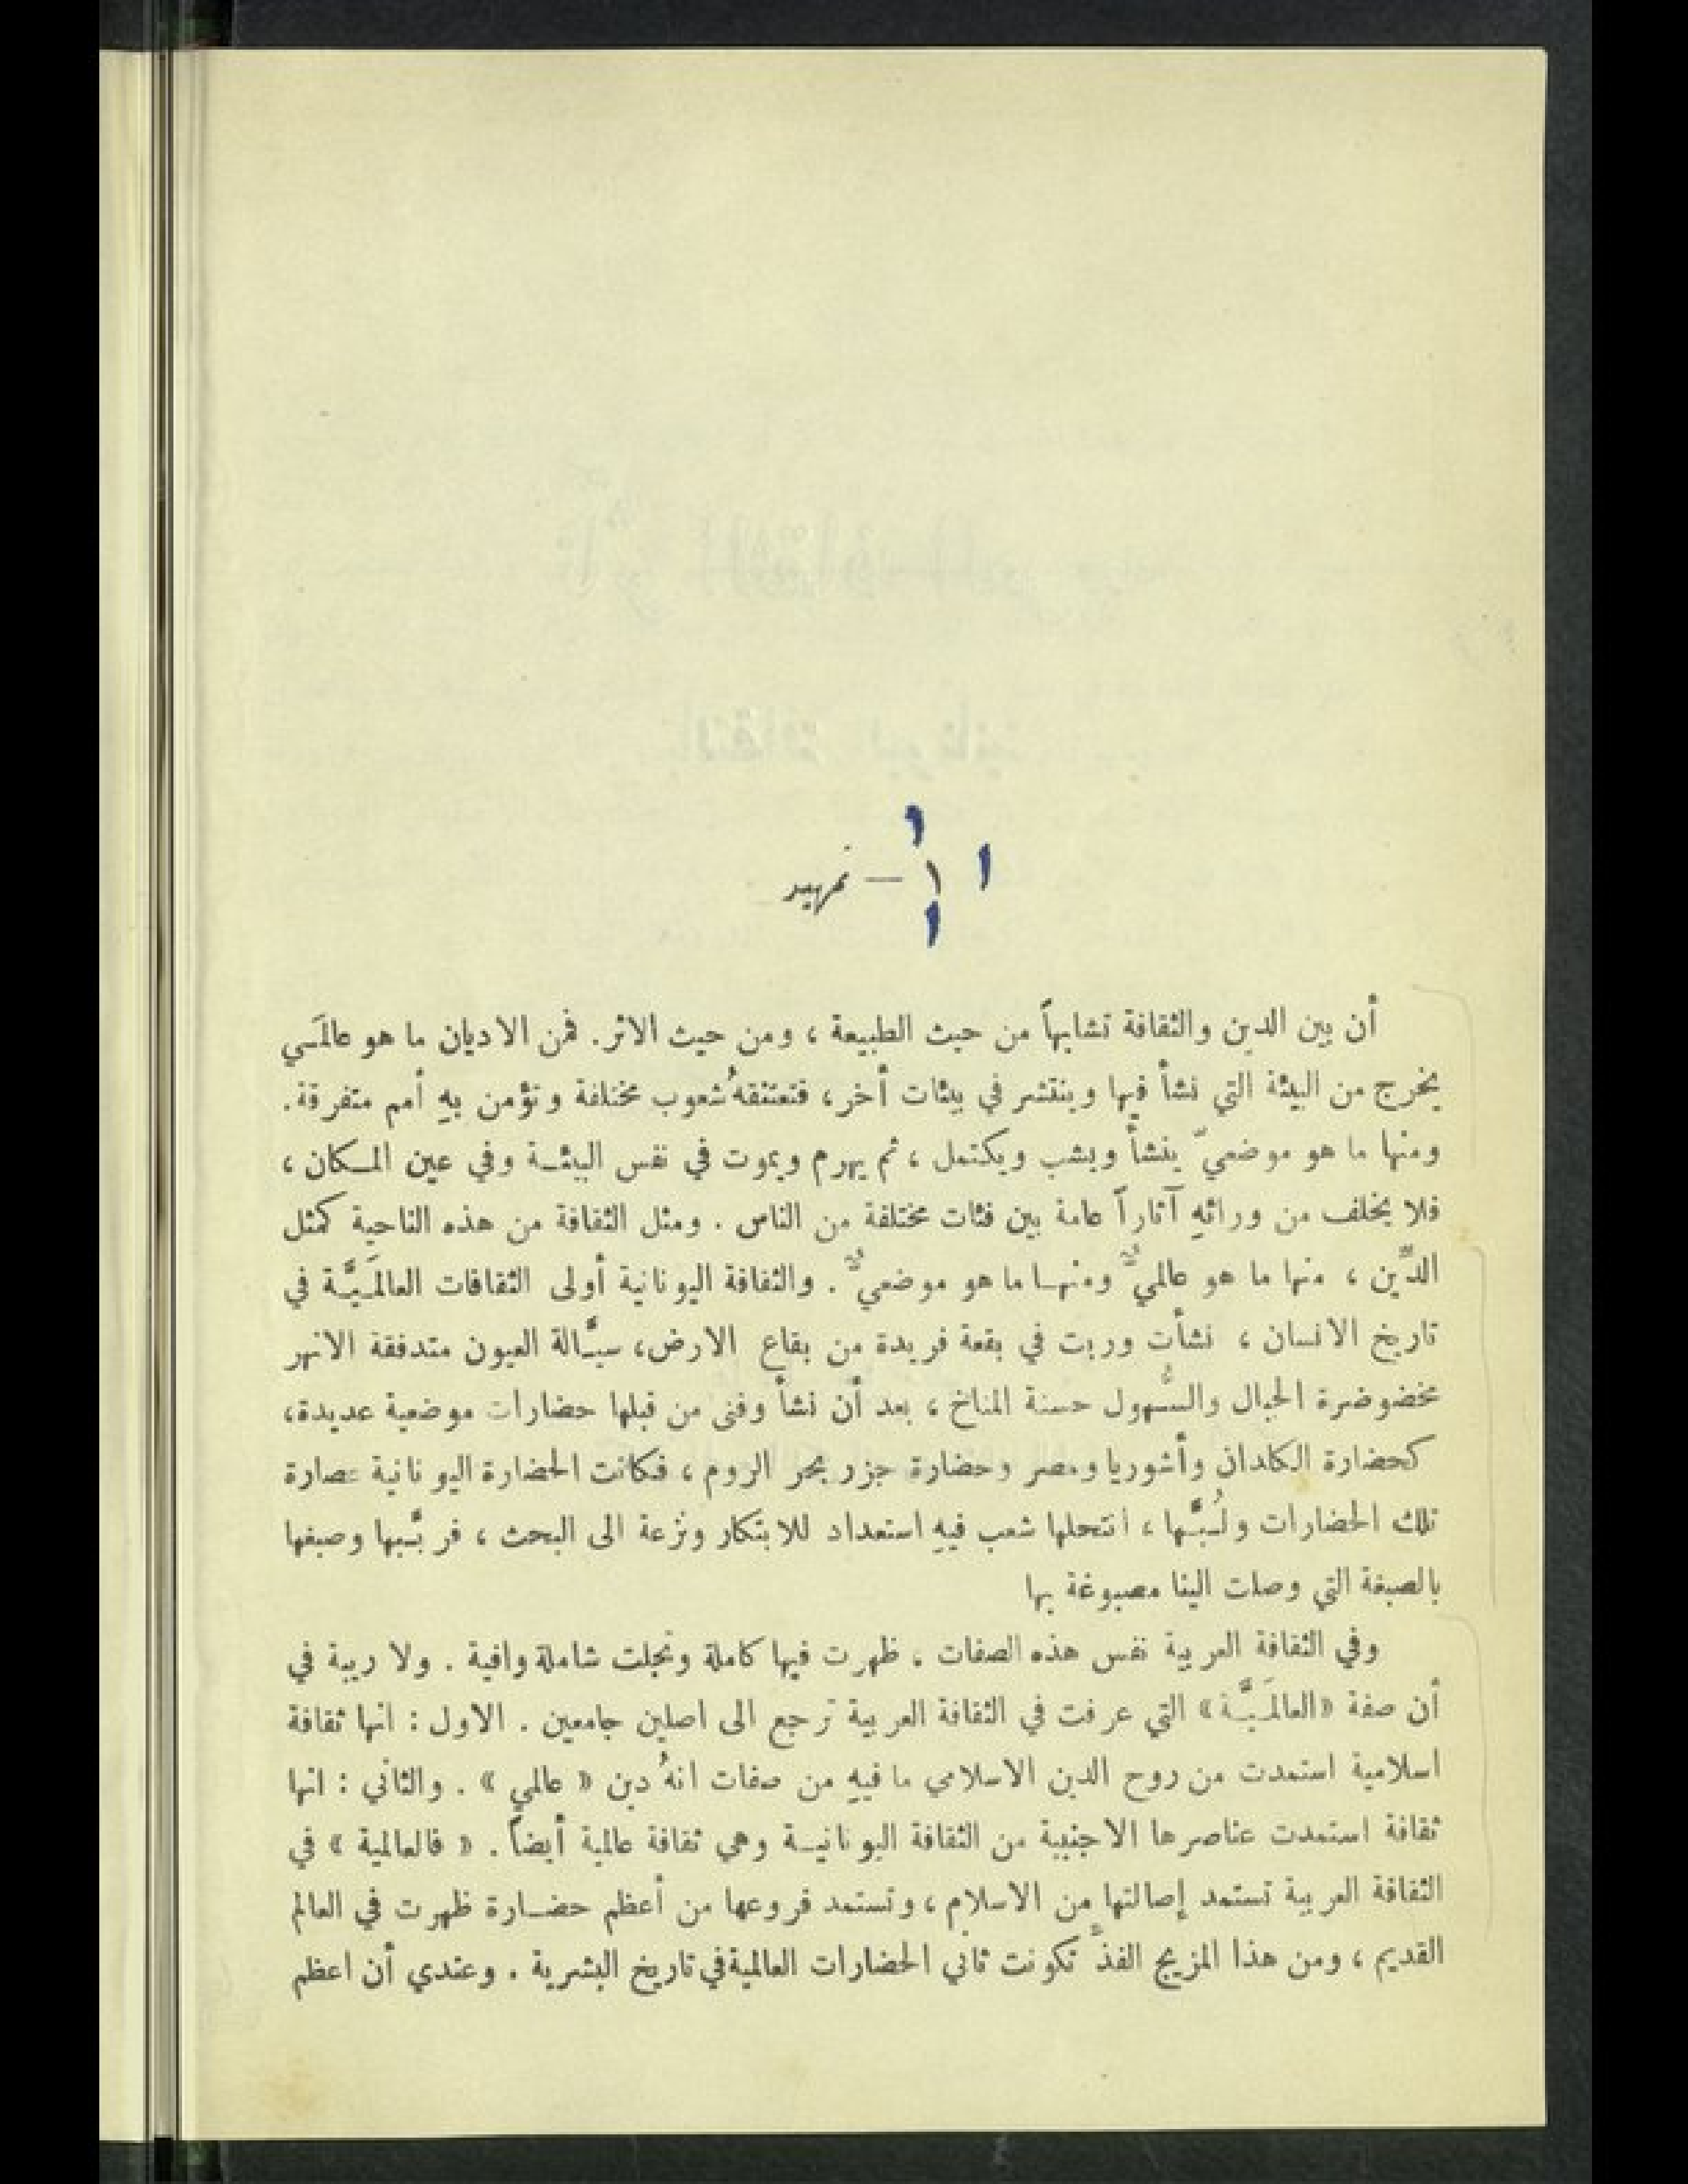 ١ — تمهيد
أن بين الدين والثقافة تشابهاً من حيث الطبيعة ، ومن حيث الاثر. فمن الاديان ما هو عالَمي
يخرج من البيئة التي نشأ فيها وينتشر في بيئات أخر ، فتعتنقهُ شعوب مختلفة وتؤمن بهِ أمم متفرقة.
ومنها ما هو موضعيّ ينشأ ويشب ويكتمل ، ثم يهرم ويموت في نفس البيئـة وفي عين المـكان ،
فلا يخلف من ورائهِ آثاراً عامة بين فئات مختلفة من الناس . ومثل الثقافة من هذه الناحية كمثل
الدِّين ، منها ما هو عالميٌّ ومنهـا ما هو موضعيٌّ . والثقافة اليونانية أولى الثقافات العالَمـيَّـة في
تاريخ الانسان ، نشأت وربت في بقعة فريدة من بقاع الارض، سيَّـالة العيون متدفقة الانهر
مخضوضرة الجبال والسُّهول حسنة المناخ ، بعد أن نشأ وفنى من قبلها حضارات موضعية عديدة،
كحضارة الكلدان وأشوريا ومصر وحضارة جزر بحر الروم ، فكانت الحضارة اليونانية عصارة
تلك الحضارات ولُبَّـها ، انتحلها شعب فيهِ استعداد للابتكار ونزعة الى البحث ، فربَّـبها وصبغها
بالصبغة التي وصلت الينا مصبوغة بها
وفي الثقافة العربية نفس هذه الصفات ، ظهرت فيها كاملة وتجلت شاملة وافية . ولا ريبة في
أن صفة «العالَمـيَّـة» التي عرفت في الثقافة العربية ترجع الى اصلين جامعين . الاول : انها ثقافة
اسلامية استمدت من روح الدين الاسلامي ما فيهِ من صفات انهُ دين « عالمي » . والثاني : انها
ثقافة استمدت عناصرها الاجنبية من الثقافة اليونانيـة وهي ثقافة عالمية أيضاً . « فالعالمية » في
الثقافة العربية تستمد إصالتها من الاسلام ، وتستمد فروعها من أعظم حضـارة ظهرت في العالم
القديم ، ومن هذا المزيج الفذّ تكونت ثاني الحضارات العالمية في تاريخ البشرية . وعندي أن اعظم